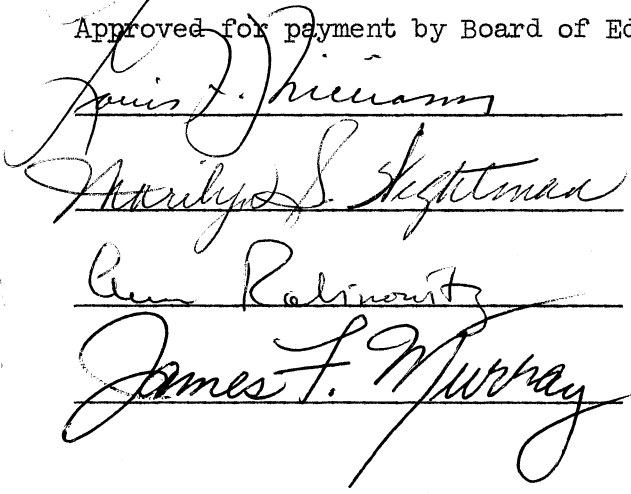 Approved for payment by Board of Ed
Louis J. Williams
Marilyn S. Wightman
Ann Rabinowitz
James F. Murray